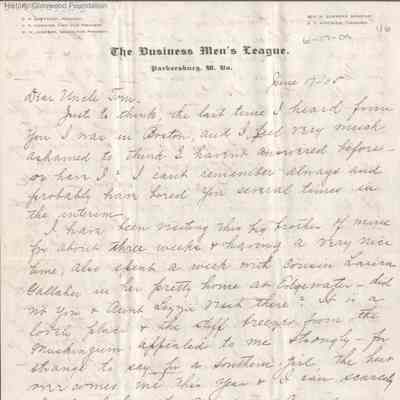 History Glenwood Foundation
The Business Men's League.
Parkersburg, W. Va.
June
Dear Uncle Tom.
Just to think, the last time I heard from
you I was in Boston, and I feel very much
ashamed to think I haven't answered before-
or have I? I can't remember always and
probably have bored you several times in
the interim.
I have been visiting this big brother of mine
for about three weeks & having a very nice
time, also spent a week with Cousin Laura
Gallaher in her pretty home at Edgewater - did
not you & Aunt Lizzie visit there? It is a
lovely place & the stiff breezes from the
Muskingum appealed to me strongly - for
strange to say, for a southern girl, the heat
overcomes me this year & I can scarcely